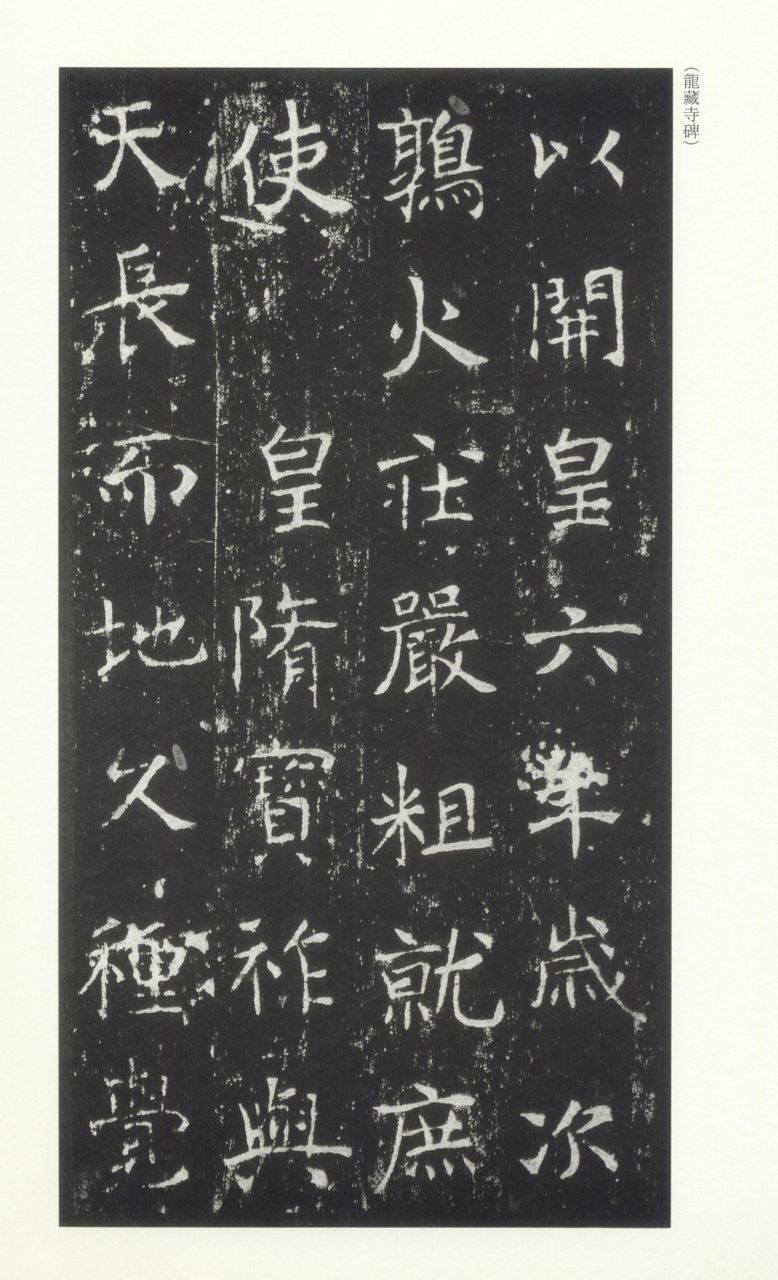 （龍藏寺碑）
以開皇六年歲次
鶉火莊嚴粗就庶
使皇隋寶祚與
天長而地久種覺